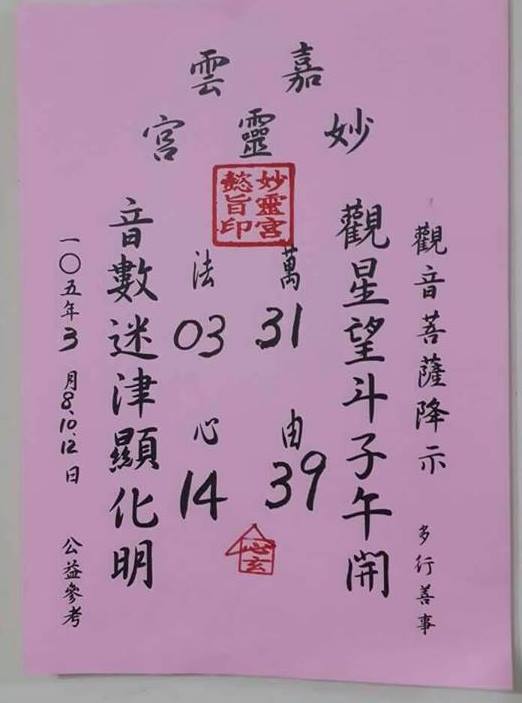 嘉雲
妙靈宮
妙靈宮
懿旨印
觀音菩薩降示 多行善事
觀星望斗子午開
萬法
31 03
由心
39 14
心玄
音數迷津顯化明
一〇五年3月8.10.12日 公益參考